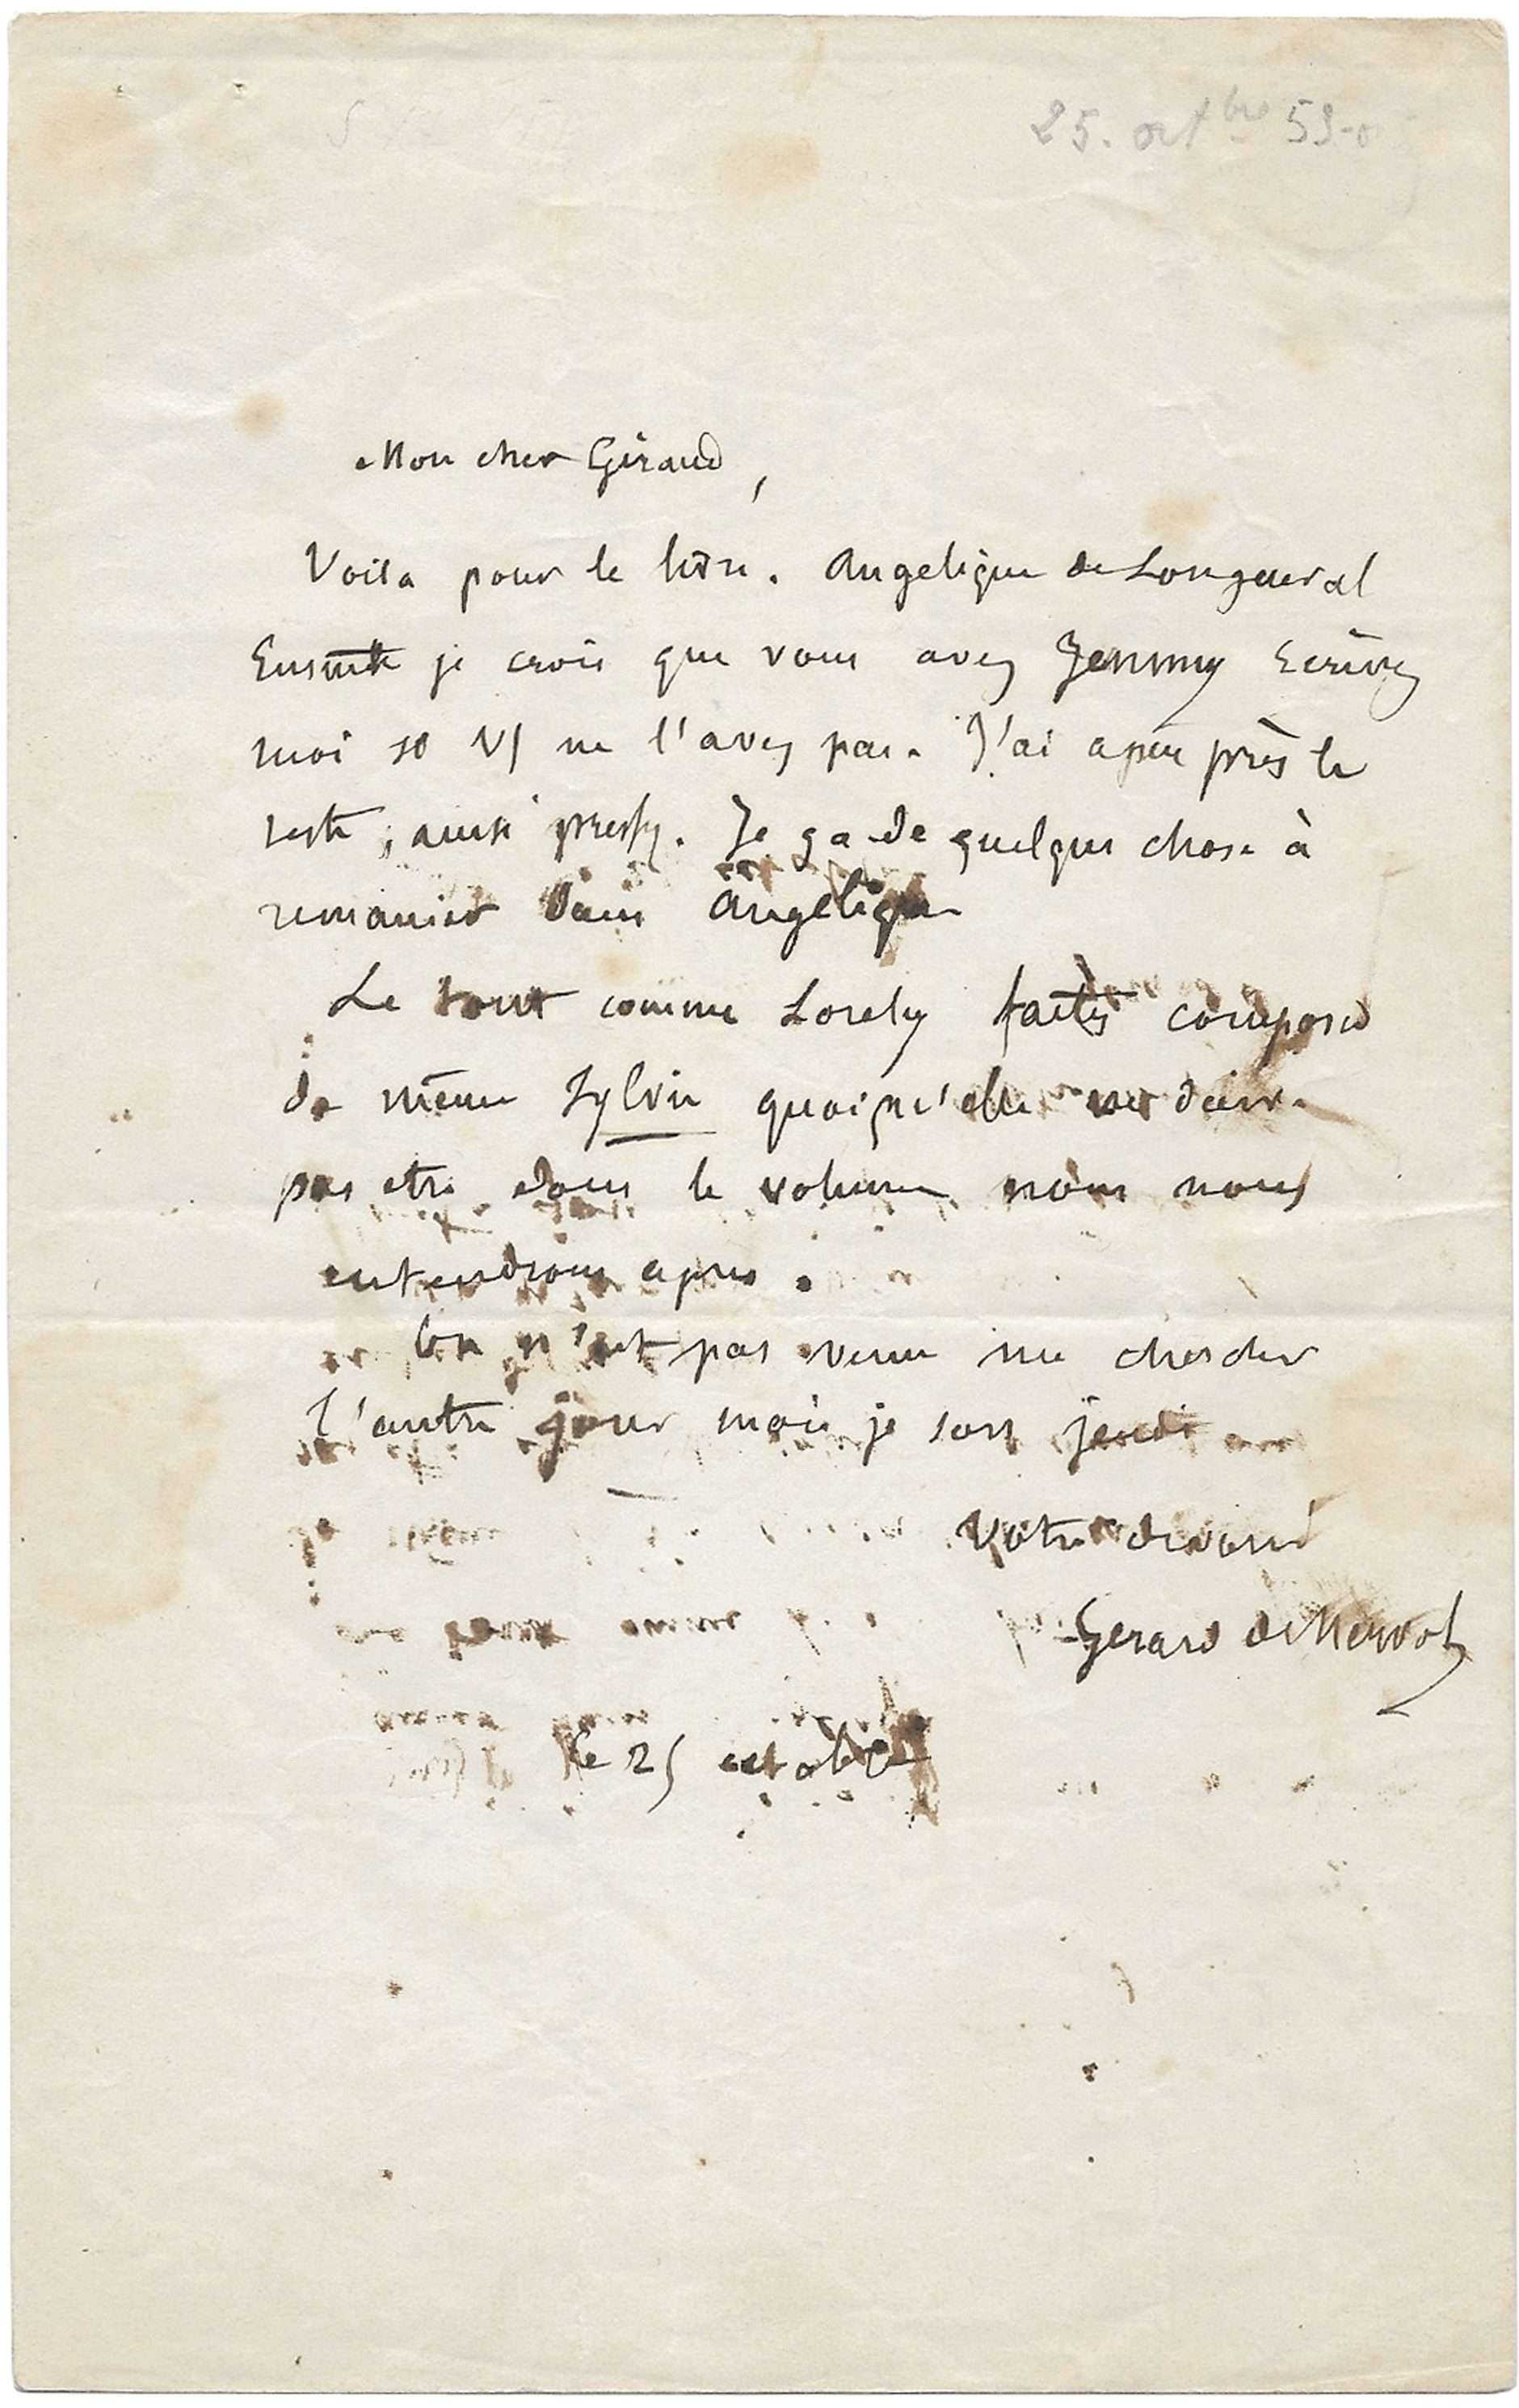 25. octbre 53
Mon cher Giraud,
Voila pour le titre. Angelique de Longueval
Ensuite je crois que vous avez Jemmy Ecrivez
moi si vs ne l'avez pas. J'ai a peu près le
reste, ainsi pressez. Je garde quelque chose à
remanier dans Angelique
Le tout comme Lorely faites composer
de même Sylvie quoiqu'elle ne doive
pas etre dans le volume nous nous
entendrons apres.
On n'est pas venu me chercher
l'autre jour mais je sors jeudi
Votre dévoué
Gerard de Nerval
le 25 octobre